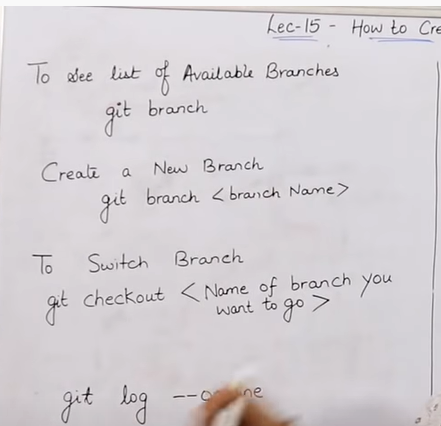 Lec-15 - How to Cre
To see list of Available Branches
git branch
Create a New Branch
git branch <branch Name>
To Switch Branch
git checkout <Name of branch you
want to go>
git log